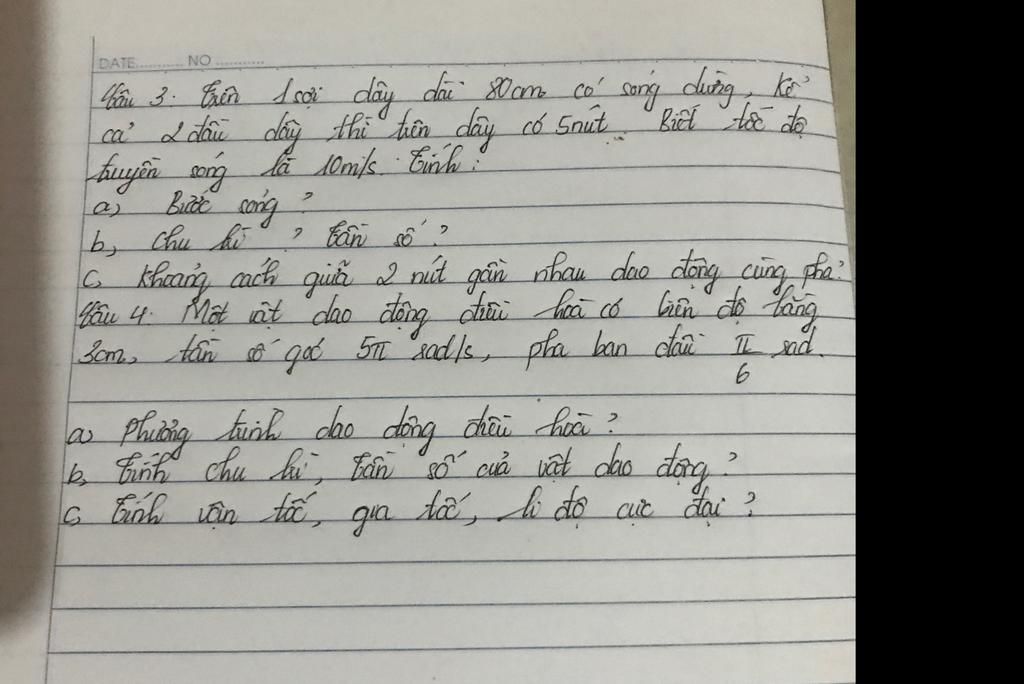 DATE............ NO ............
Câu 3: Trên 1 sợi dây dài 80cm có sóng dừng, kể
cả 2 đầu dây thì trên dây có 5 nút. Biết tốc độ
truyền sóng là 10m/s. Tính:
a, Bước sóng?
b, Chu kì? Tần số?
c, Khoảng cách giữa 2 nút gần nhau dao động cùng pha?
Câu 4: Một vật dao động điều hoà có biên độ bằng
3cm, tần số góc 5π rad/s, pha ban đầu π/6 rad.
a, Phương trình dao động điều hoà?
b, Tính chu kì, tần số của vật dao động?
c, Tính vận tốc, gia tốc, li độ cực đại?